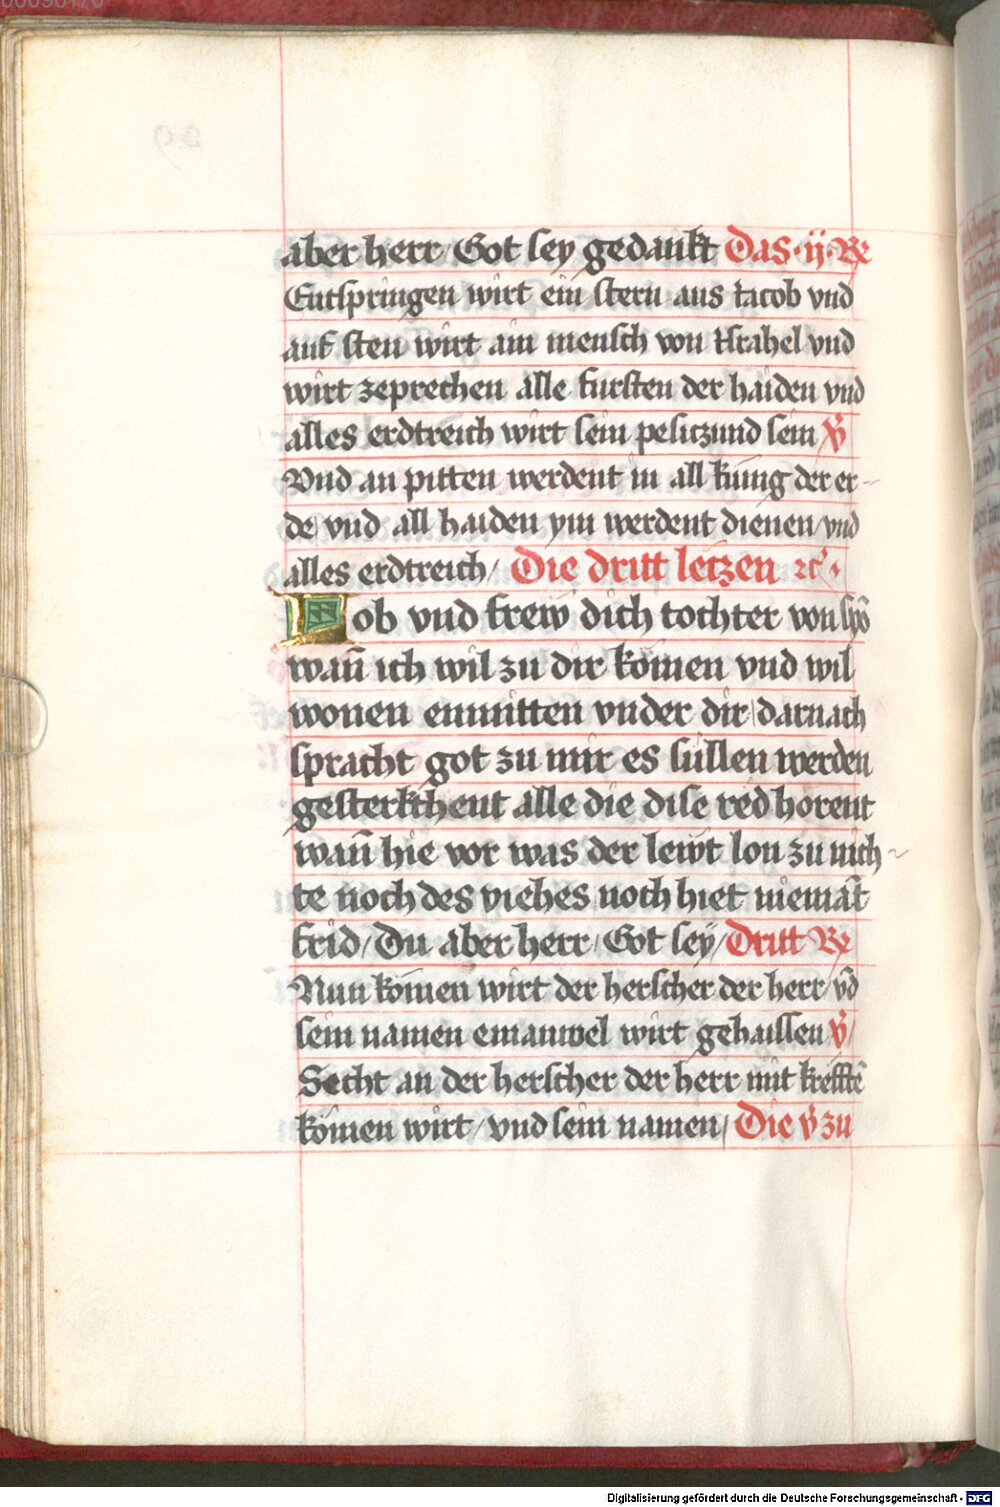 aber herr Got sey gedankt Das ·ij· Re
Entspringen wirt ein stern aus Iacob vnd
auf sten wirt ain mensch von Israhel vnd
wirt zeprechen alle fursten der haiden vnd
alles erdtreich wirt sein pesiczund sein v̄
Vnd an pitten werdent in all kung der er-
de vnd all haiden ym werdent dienen vnd
alles erdtreich/ Die dritt letzen ꝛc̄ ·
Lob vnd frew dich tochter von syō
wan̄ ich wil zu dir kōmen vnd wil
wonen enmitten vnder dir darnach
spracht got zu mir es sullen werden
gesterkhent alle die dise red horent
wan̄ hie vor was der lewt lon zu nich-
te noch des viehes noch hiet niemāt
frid/ Du aber herr/ Got seÿ/ Dritt Re
Nun kōmen wirt der herscher der herr/ vn̄d
sein namen emanwel wirt gehaissen v̄/
Secht an der herscher der herr mit krefftē
kōmen wirt/ vnd sein namen/ Die v̄ zu
Digitalisierung gefördert durch die Deutsche Forschungsgemeinschaft - DFG